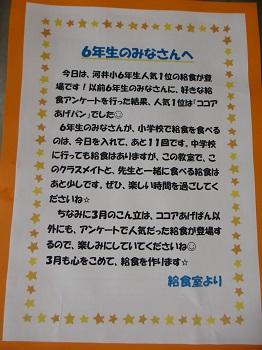 6年生のみなさんへ
今日は、河井小6年生人気1位の給食が登
場です!以前6年生のみなさんに、好きな給
食アンケートを行った結果、人気1位は「ココア
あげパン」でした☺
6年生のみなさんが、小学校で給食を食べる
のは、今日を入れて、あと11回です。中学校
に行っても給食はありますが、この教室で、こ
のクラスメイトと、先生と一緒に食べる給食は
あと少しです。ぜひ、楽しい時間を過ごしてく
ださいね☆
ちなみに3月のこん立は、ココアあげぱん以
外にも、アンケートで人気だった給食が登場す
るので、楽しみにしていてくださいね☺
3月も心をこめて、給食を作ります☆
給食室より